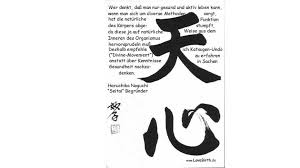 Wer denkt, daß man nur gesund und aktiv leben kann,
wenn man sich um diverse Methoden
hat die natürliche Funktion
des Körpers abge- stumpft,
da diese ja auf natürliche Weise aus dem
Inneren des Organismus
hervorsprudeln muß
Deshalb empfehle ich Katsugen-Undo
("Divine-Movement") zu erfahren
anstatt über Kenntnisse in Sachen
Gesundheit nachzu-
denken.
Haruchika Noguchi
"Seitai" Begründer
天心
www.LoveBirth.de